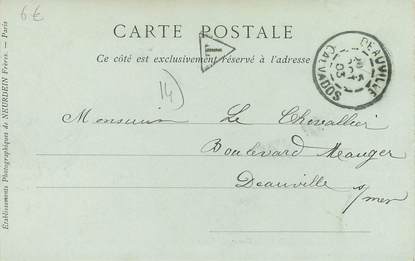 6€
CARTE POSTALE
Ce côté est exclusivement réservé à l'adresse
T
DEAUVILLE
CALVADOS
03
14
Monsieur Le Chevallier
Boulevard Mauger
Deauville s/mer
Établissements Photographiques de NEURDEIN Frères. — Paris